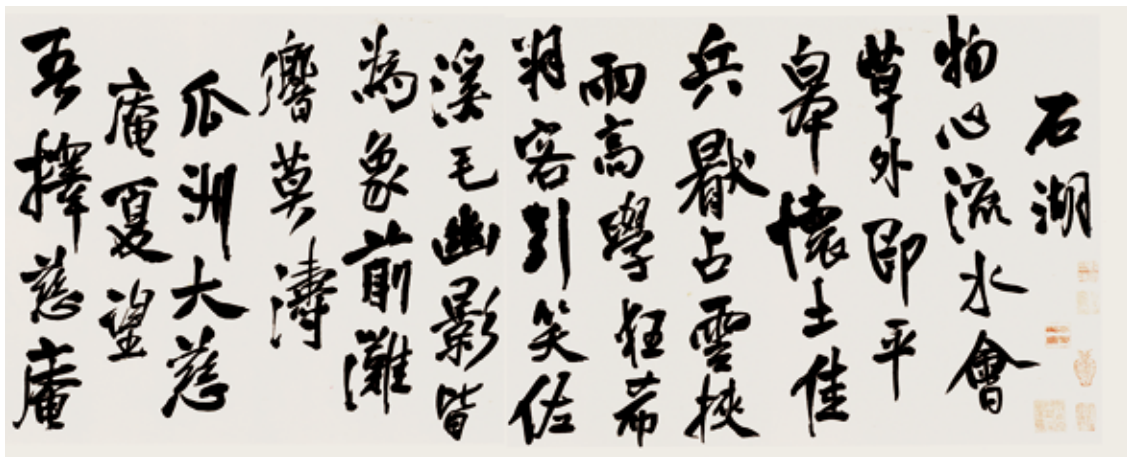 石湖
物心流水會
草外即平
皋懷土佳
兵厭占雲挾
雨高學狂希
客引笑佐
溪毛幽影皆
為象前灘
莫濤
瓜洲大慈
庵夏望
吾擇慈庵